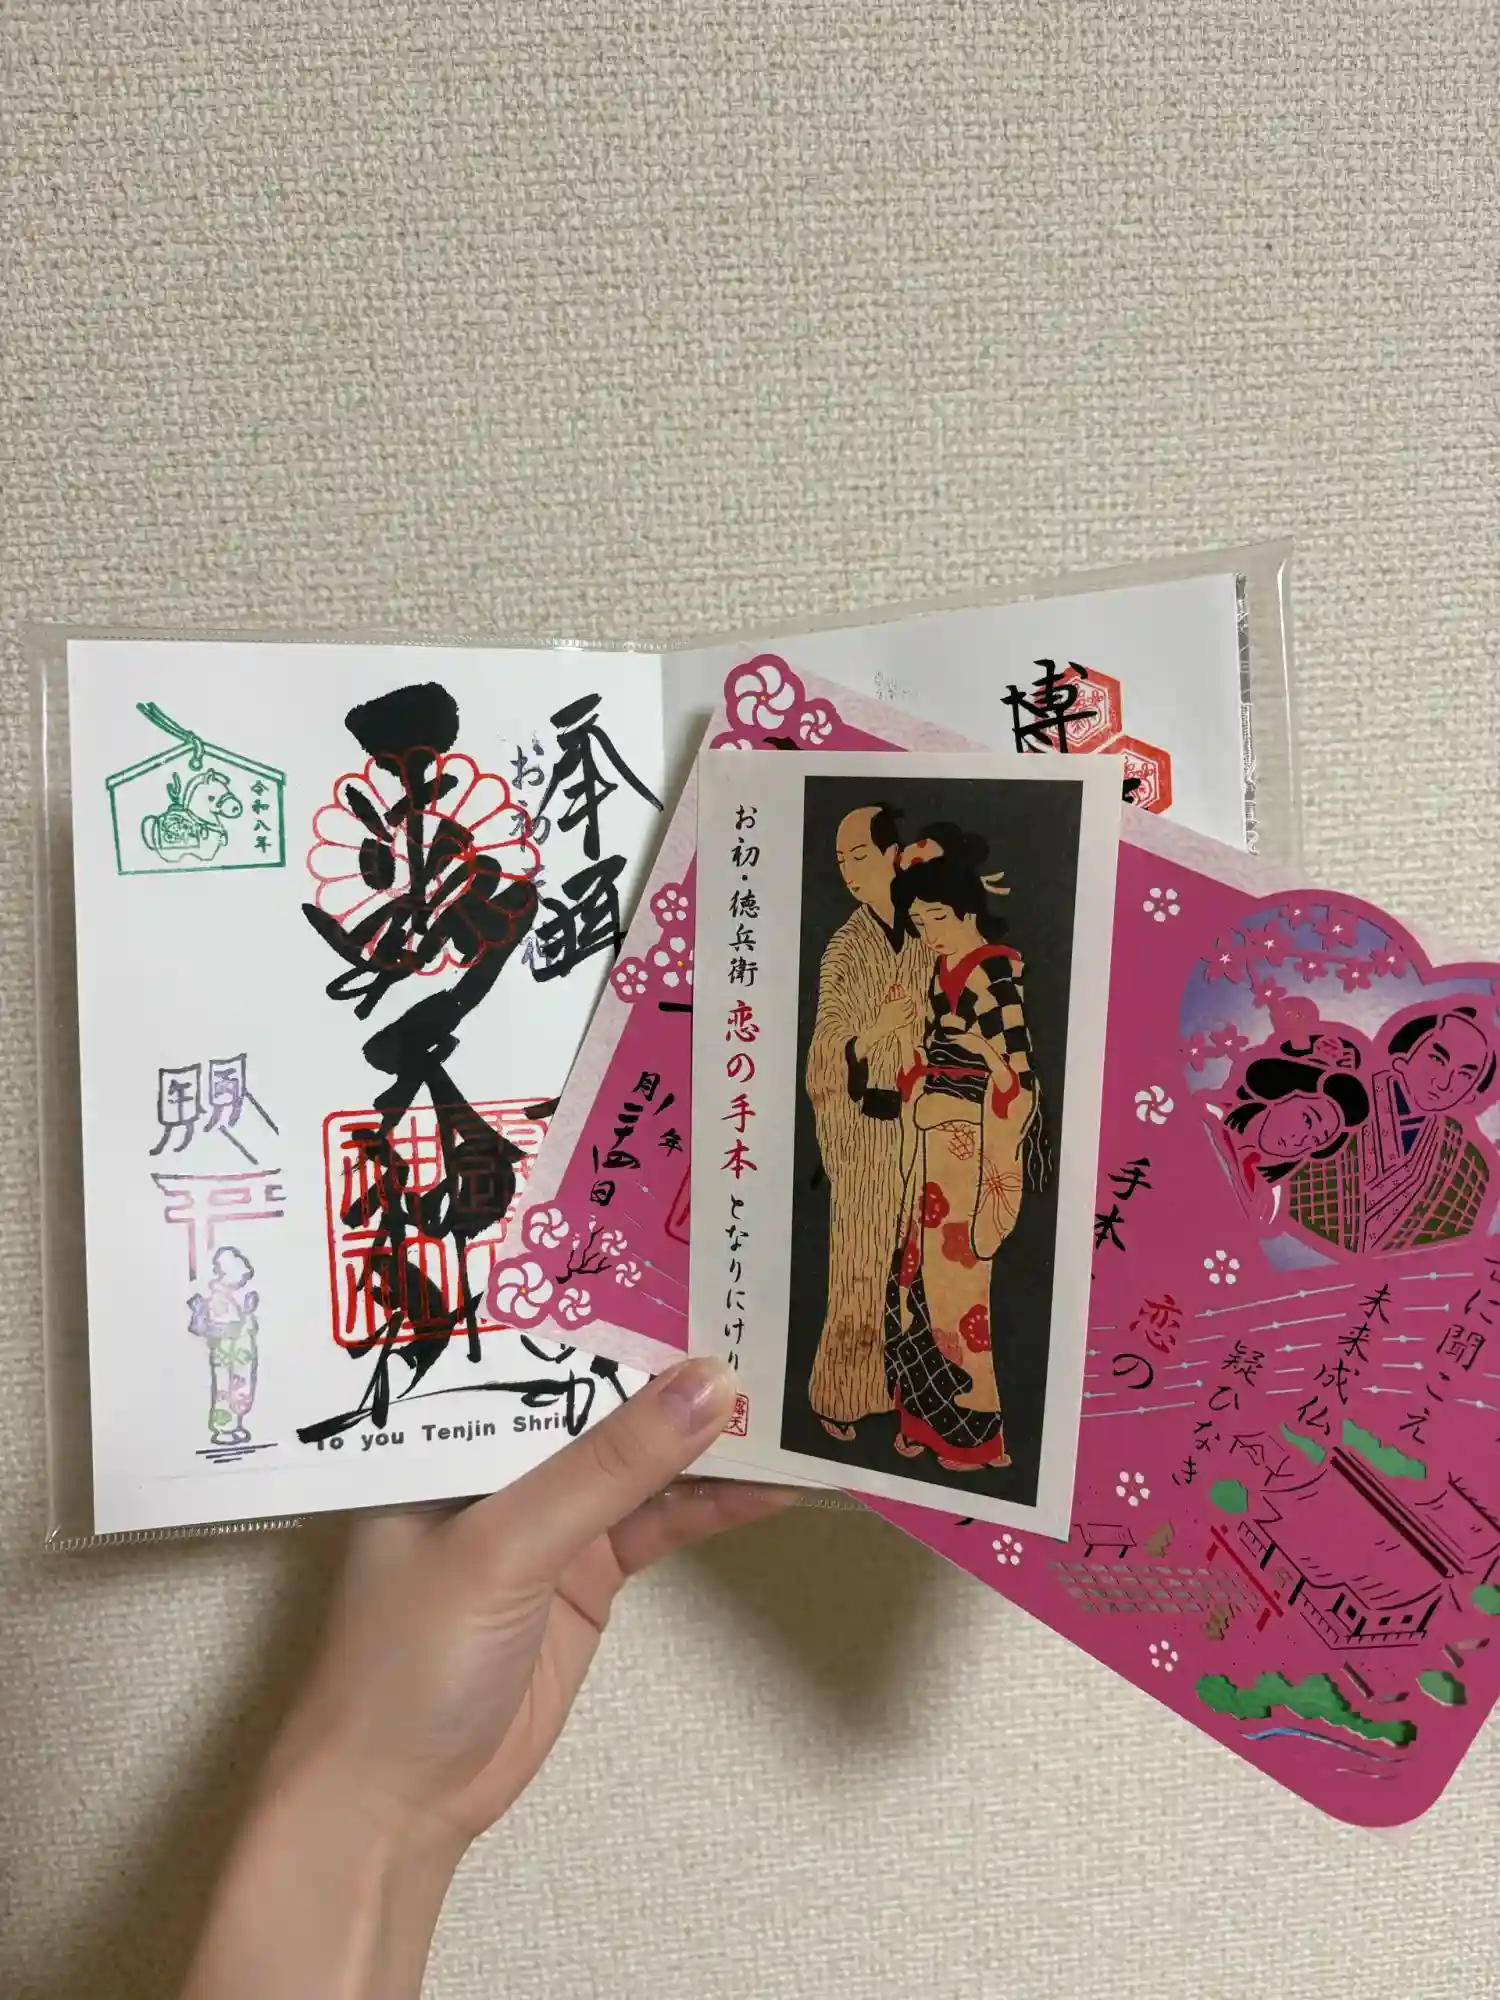 令和八年
奉拝
お初
露天神社
願
神社
To you Tenjin Shrin
博
月
二十四日
年
お初・徳兵衛 恋の手本 となりにけり
露天
手本
恋の
に聞こえ
未来成仏
疑ひなき